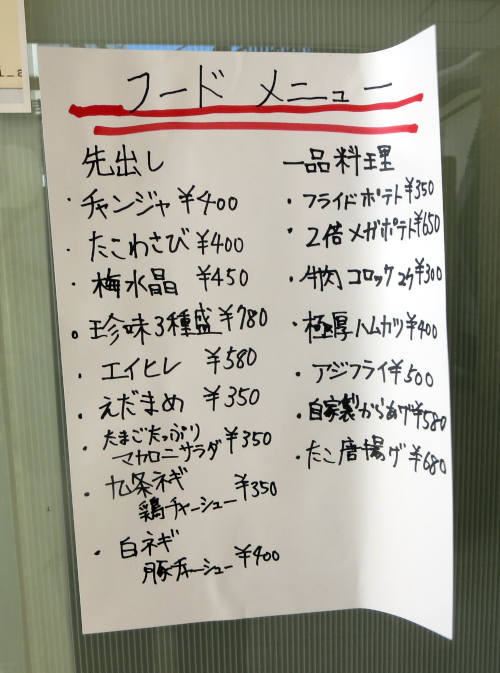 フード メニュー
先出し
・チャンジャ ¥400
・たこわさび ¥400
・梅水晶 ¥450
・珍味3種盛 ¥780
・エイヒレ ¥580
・えだまめ ¥350
・たまごたっぷり
マカロニサラダ ¥350
・九条ネギ
鶏チャーシュー ¥350
・白ネギ
豚チャーシュー ¥400
一品料理
・フライドポテト ¥350
・2倍メガポテト ¥650
・牛肉コロッケ2ケ ¥300
・極厚ハムカツ ¥400
・アジフライ ¥500
・自家製からあげ ¥580
・たこ唐揚げ ¥680